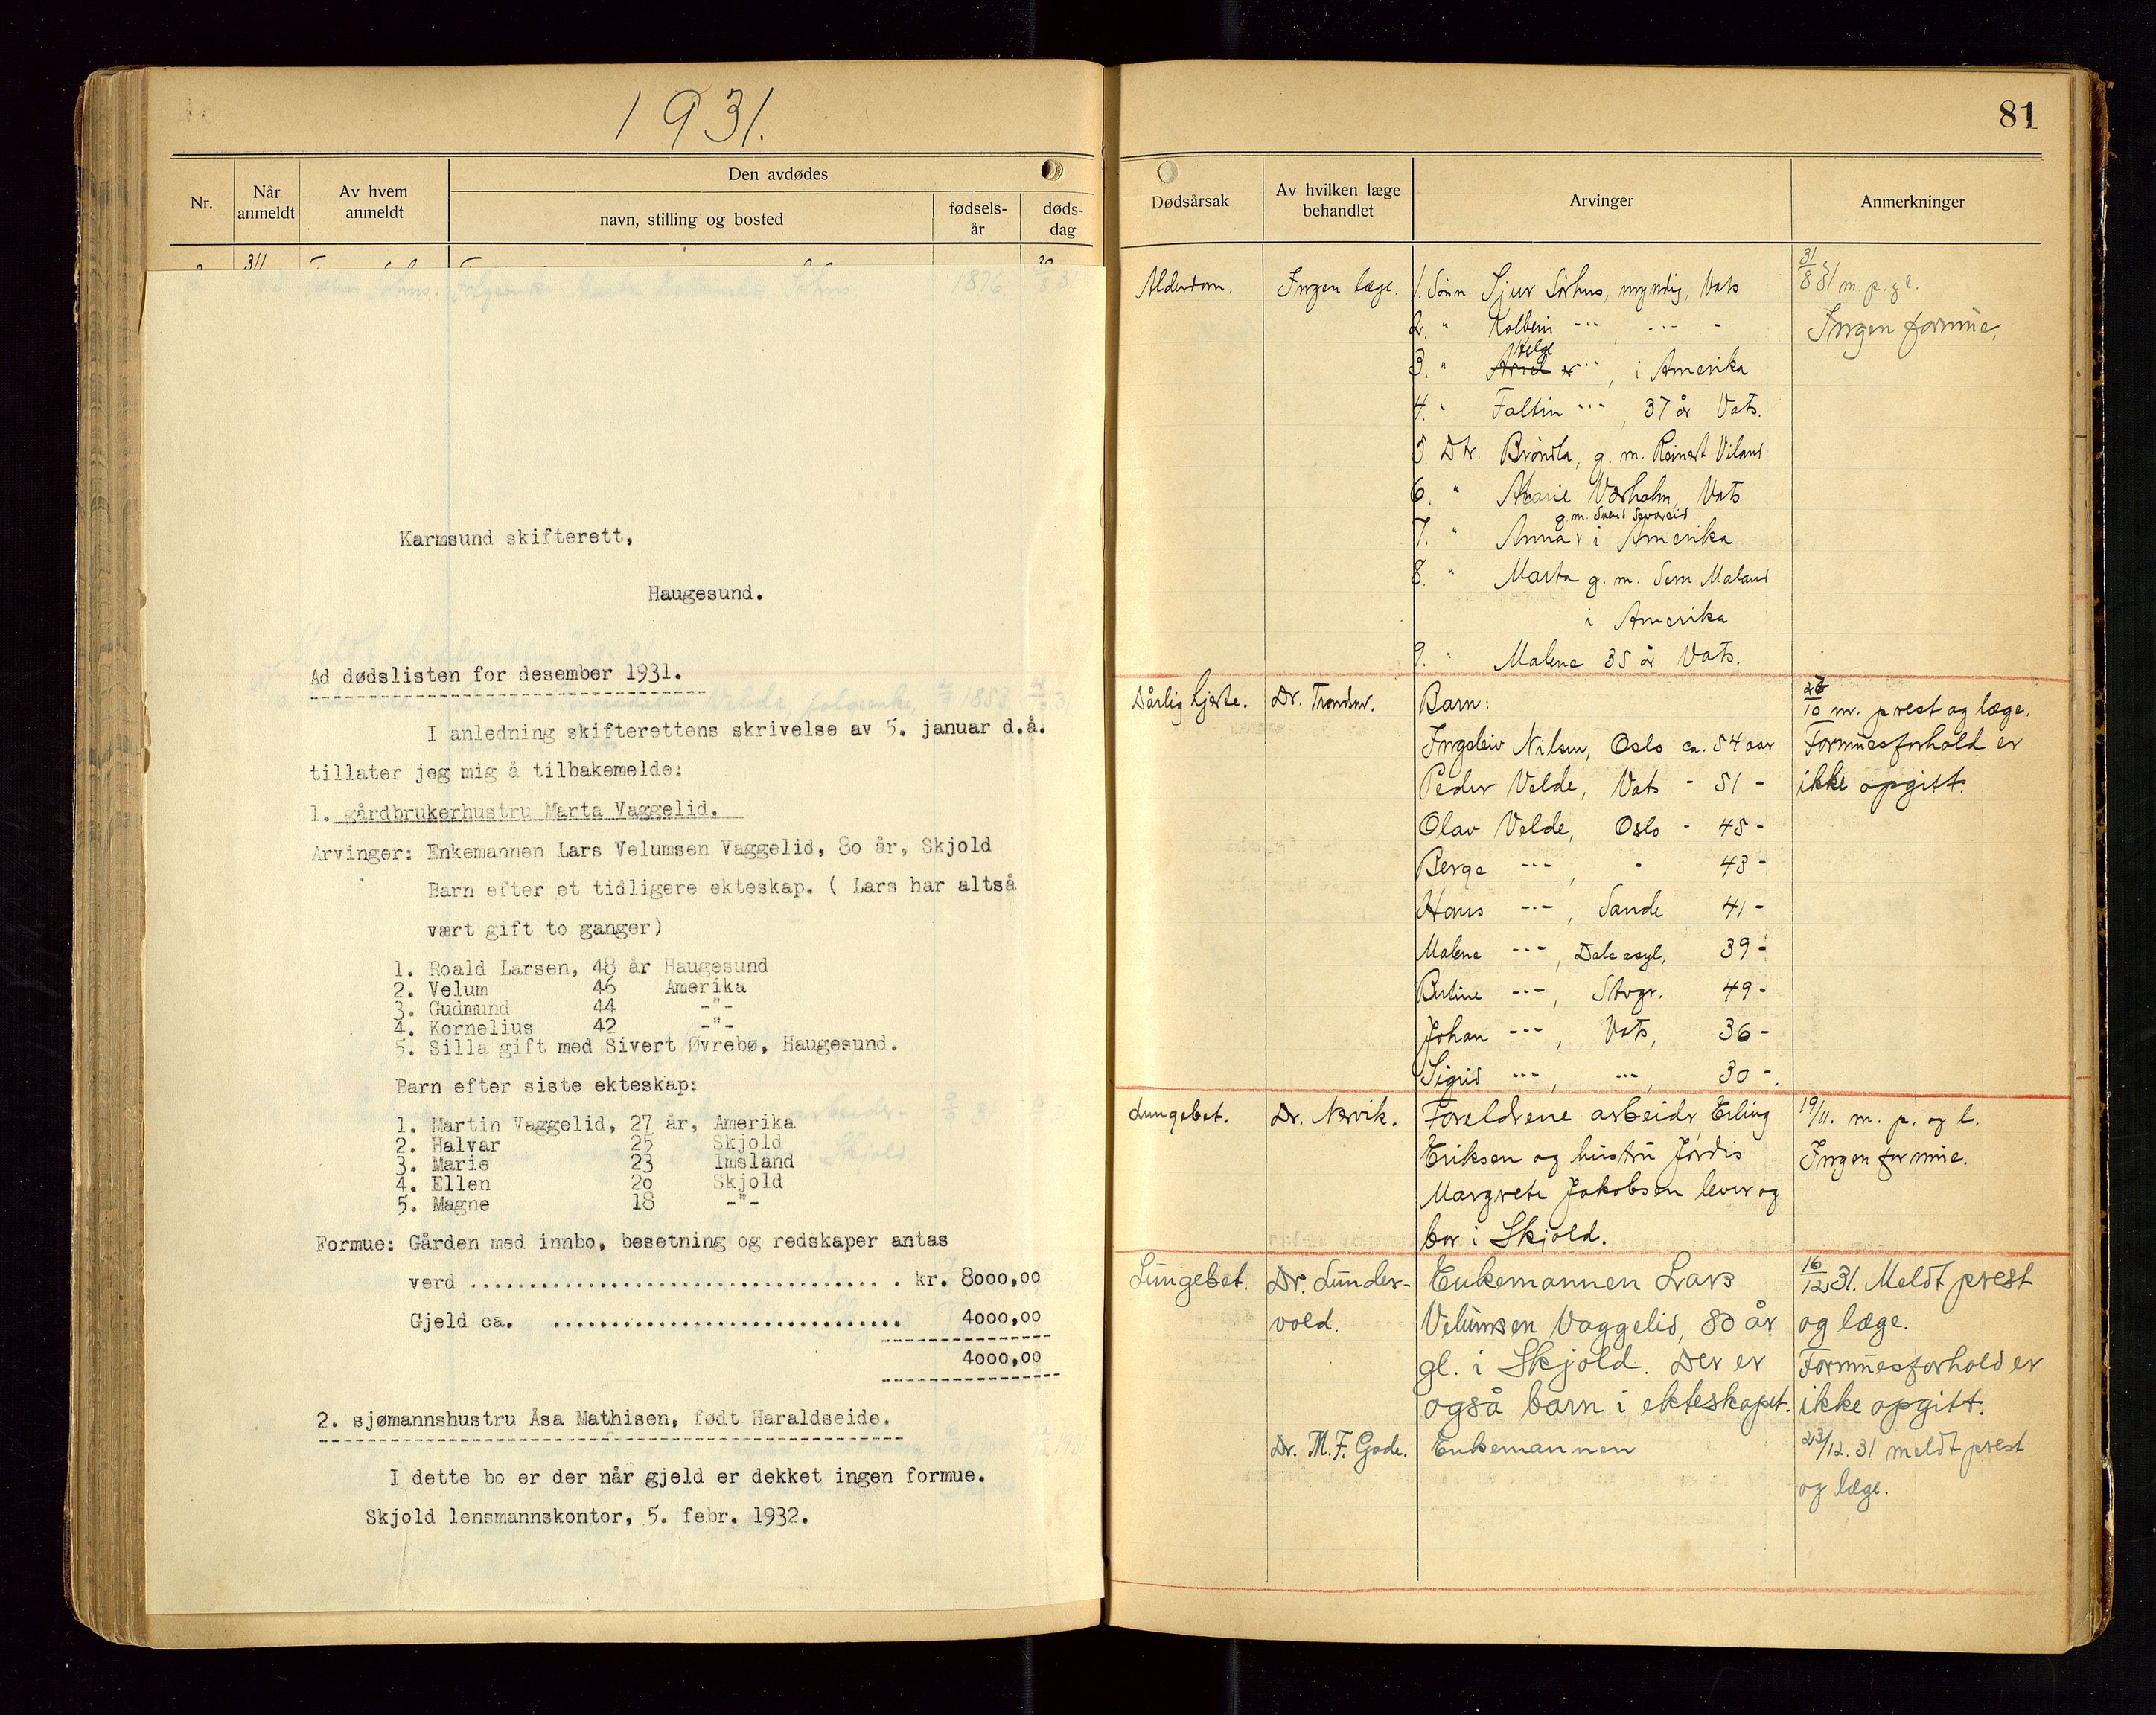 1931.
Nr.
Når anmeldt
Av hvem anmeldt
Den avdødes
navn, stilling og bosted
fødsels-år
døds-dag
Karmsund skifterett,
Haugesund.
Ad dødslisten for desember 1931.
I anledning skifterettens skrivelse av 5. januar d.å.
tillater jeg mig å tilbakemelde:
1. gårdbrukerhustru Marta Vaggelid.
Arvinger: Enkemannen Lars Velumsen Vaggelid, 80 år, Skjold
Barn efter et tidligere ekteskap. ( Lars har altså
vært gift to ganger)
1. Roald Larsen, 48 år Haugesund
2. Velum 46 Amerika
3. Gudmund 44 -"-
4. Kornelius 42 -"-
5. Silla gift med Sivert Øvrebø, Haugesund.
Barn efter siste ekteskap:
1. Martin Vaggelid, 27 år, Amerika
2. Halvar 25 Skjold
3. Marie 23 Imsland
4. Ellen 20 Skjold
5. Magne 18 -"-
Formue: Gården med innbo, besetning og redskaper antas
verd ..................................... kr. 8000,00
Gjeld ca. .............................. 4000,00
4000,00
2. sjømannshustru Åsa Mathisen, født Haraldseide.
I dette bo er der når gjeld er dekket ingen formue.
Skjold lensmannskontor, 5. febr. 1932.
81
Dødsårsak
Av hvilken læge behandlet
Arvinger
Anmerkninger
Alderdom. Ingen læge. 1. Sønn Sjur Sørhus, myndig, Vats
31/8 31 m. p. g l.
2. " Kolbein --- --- -
Ingen formue.
Helge
3. " , i Amerika
4. " Faltin --- , 37 år Vats.
5. Dtr. Brøndla, g. m. Reinert Viland
6. " Marie Vårholm, Vats
7. " Anna i Amerika
8. " Marta g. m. Sem Maland
i Amerika
9. " Malene 35 år Vats.
Dårlig hjerte. Dr. Barn:
/10 m. prest og læge.
Nilsen, Oslo ca. 54 aar
Formuesforhold er
Peder Velde, Vats - 51 -
ikke opgitt.
Olav Velde, Oslo - 45 -
Berge --- , - 43 -
Hans --- , Sande 41 -
Malene --- , Dale asyl, 39 -
Berline --- , Stvgr. 49 -
Johan --- , Vats, 36 -
Sigrid --- , --- , 30 -.
Lungebet. Dr. Nervik. Foreldrene arbeidr Erling
19/11. m. p. og l.
Eriksen og hustru Jørdis
Ingen formue.
Margrete Jakobsen lever og
bor i Skjold.
Lungebet. Dr. Lunder- Enkemannen Lars
16/12 31. Meldt prest
vold. Velumsen Vaggelid, 80 år
og læge.
gl. i Skjold. Der er
Formuesforhold er
også barn i ekteskapet.
ikke opgitt.
Dr. M. F. Gode. Enkemannen
23/12. 31 meldt prest
og læge.